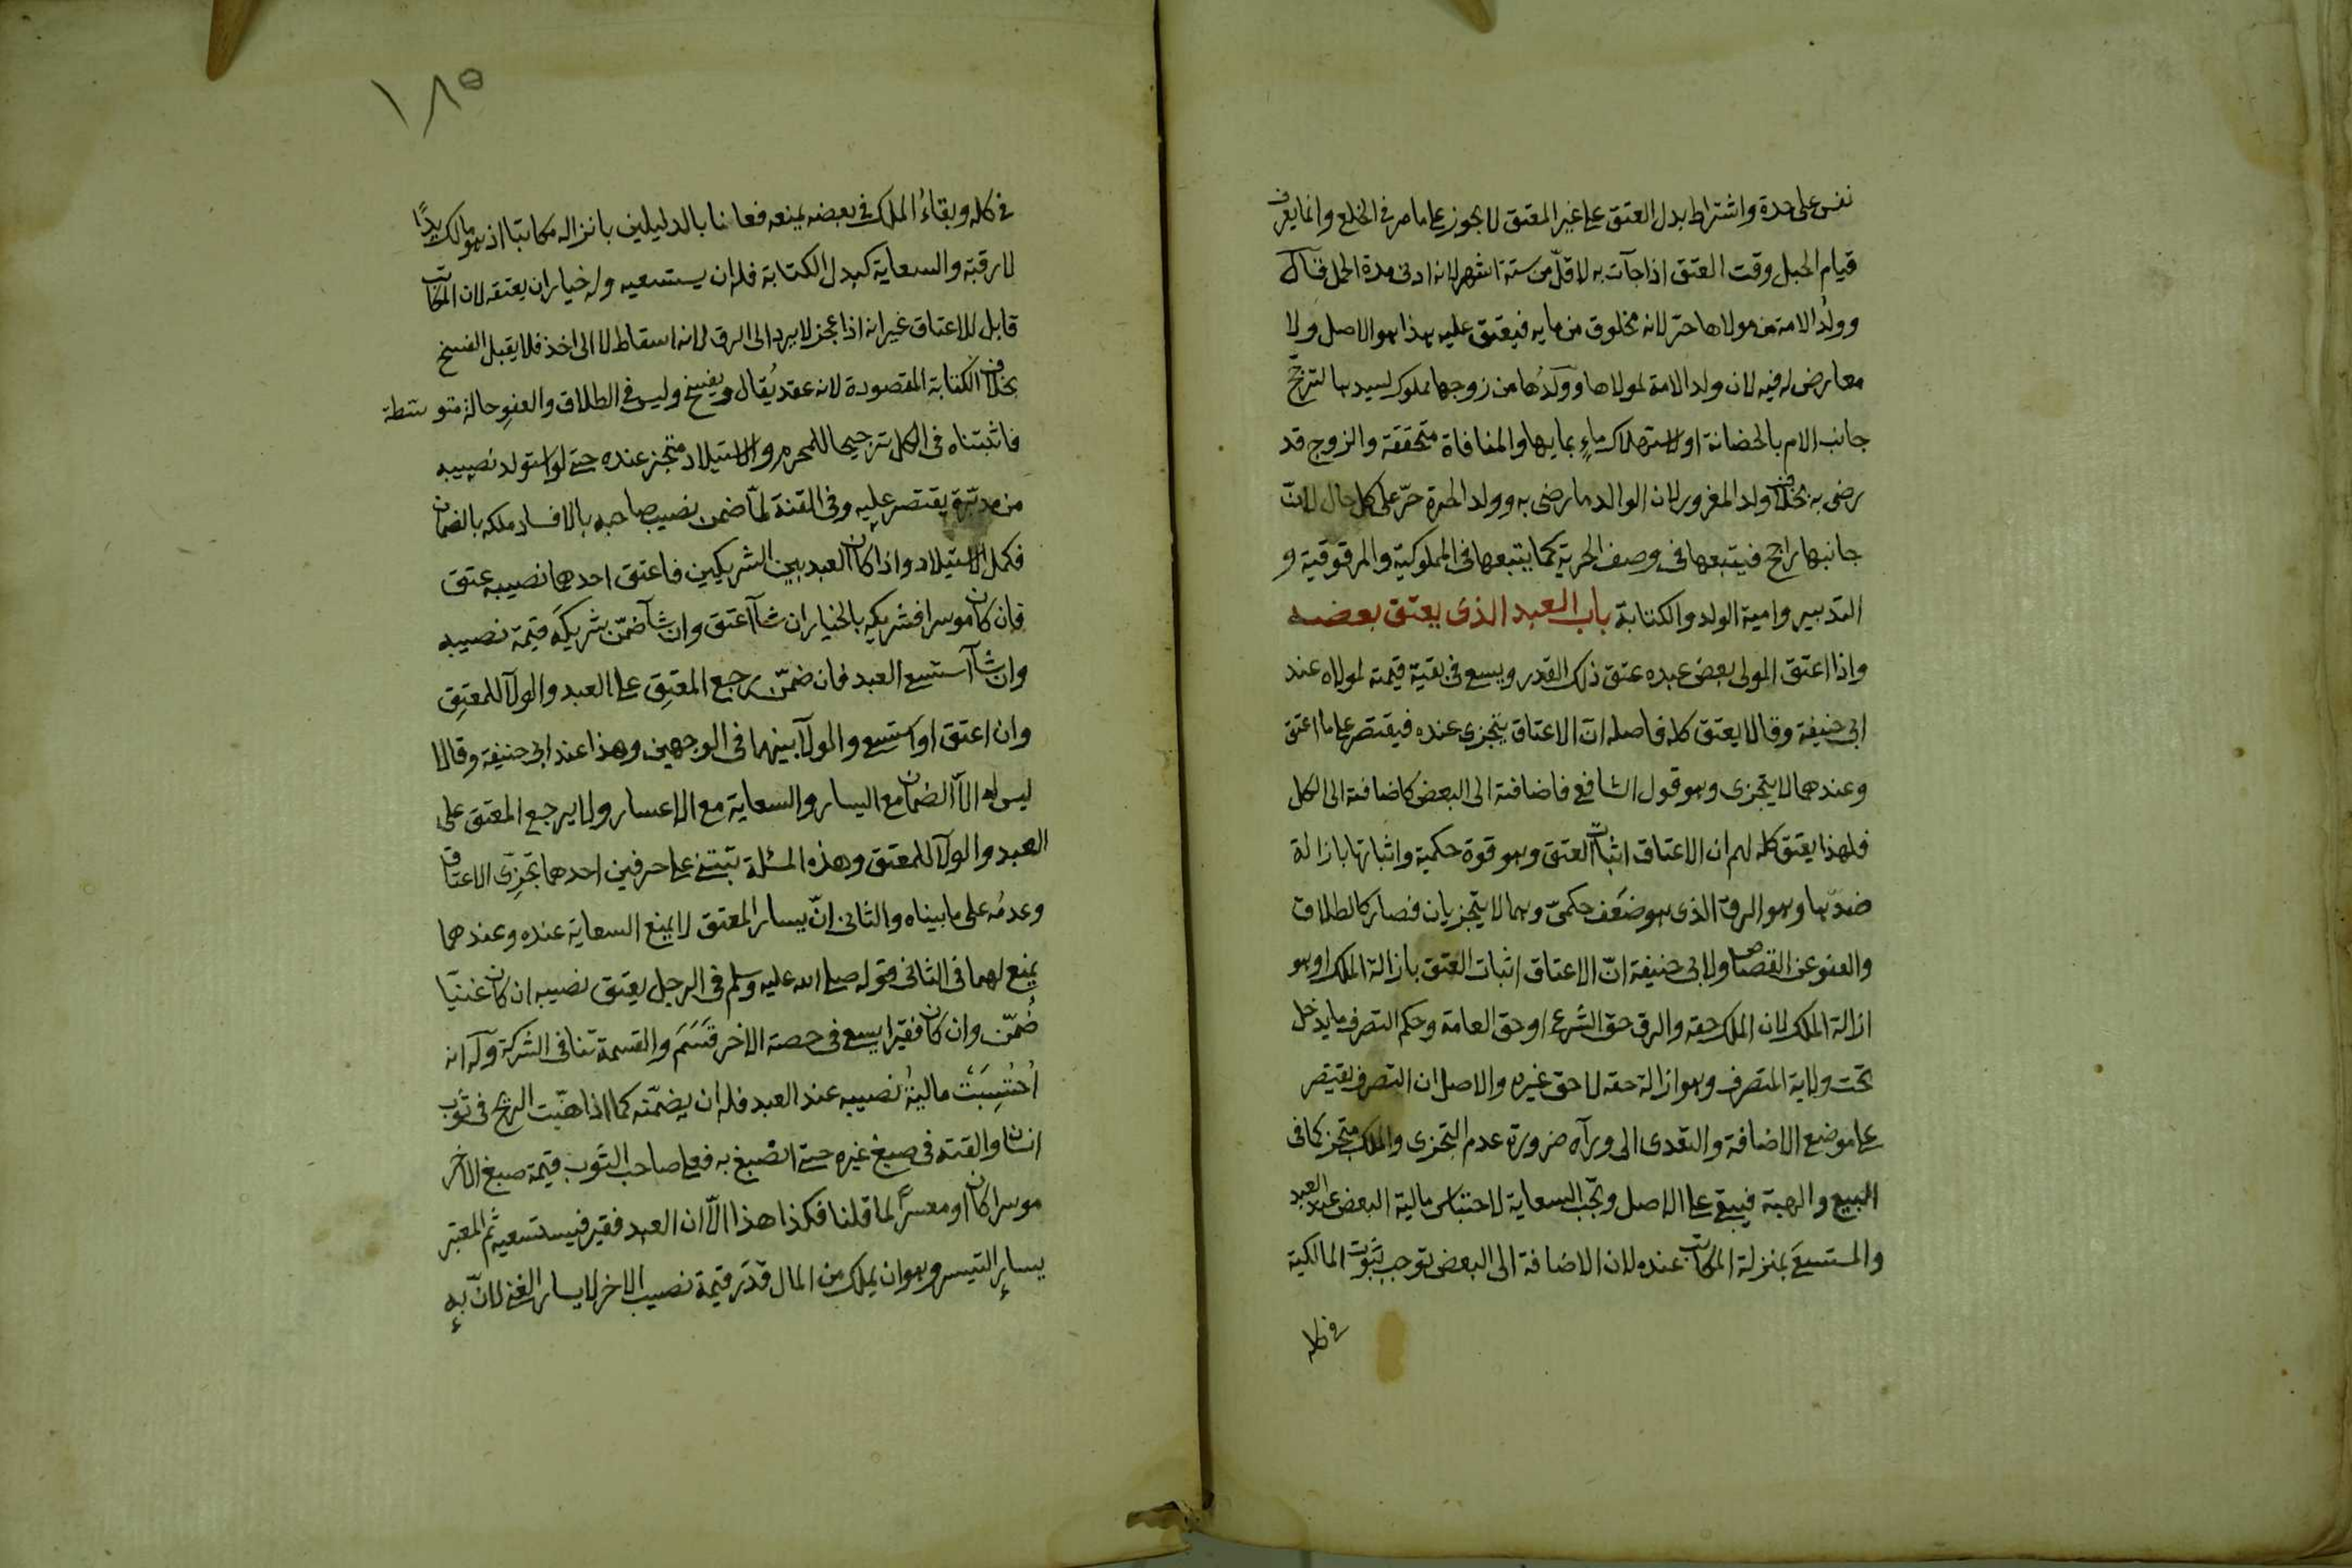 نفس على حدة واشتراط بدل العتق على غير المعتق لا يجوز على ما مر في الخلع وانما يعرف
قيام الحبل وقت العتق اذا جآت به لاقلّ من ستة اشهر لانه ادنى مدة الحمل قال
وولدُ الامة من مولاها حرّ لانه مخلوق من مايه فيعتق عليه هذا هو الاصل ولا
معارض له فيه لان ولد الامة لمولاها وولدُها من زوجها مملوك لسيدها لترجّح
جانب الام بالحضانة او لاستهلاك ماءٍ بمايها والمنافاة متحققة والزوج قد
رضى به بخلاف ولد المغرور لان الوالد ما رضى به وولد الحرة حرّ على كل حال لانّ
جانبها راجح فيتبعها في وصف الحرية كما يتبعها في المملوكية والمرقوقية و
التدبير وامية الولد والكتابة باب العبد الذى يعتق بعضه
واذا اعتق المولى بعض عبده عتق ذلك القدر ويسعى في بقية قيمته لمولاه عند
ابى حنيفة وقالا يعتق كله فاصله انّ الاعتاق يتجزى عنده فيقتصر على ما اعتق
وعندهما لا يتجزى وهو قول الشافعى فاضافته الى البعض كاضافته الى الكل
فلهذا يعتق كله لهم ان الاعتاق اثبات العتق وهو قوة حكمية واثباتها بازالة
ضدّها وهو الرق الذى هو ضَعف حكمىّ وهما لا يتجزيان فصار كالطلاق
والعفو عن القصاص ولابى حنيفة انّ الاعتاق اثبات العتق بازالة الملك او هو
ازالة الملك لان الملك حقه والرق حق الشرع او حق العامة وحكم التصرف ما يدخل
تحت ولاية المتصرف وهو ازالة حقه لا حق غيره والاصل ان التصرف يقتصر
على موضع الاضافة والتعدى الى ورآه ضرورة عدم التجزى والملك متجز كما في
البيع والهبة فيبقى على الاصل وتجب السعاية لاحتباس مالية البعض عند العبد
والمستسعَى بمنزلة المكاتب عنده لان الاضافة الى البعض توجب ثبوت المالكية
في كله
١٨٥
في كله وبقاءُ الملك في بعضه يمنعه فعملنا بالدليلين بانزاله مكاتبا اذ هو مالك يدًا
لا رقبة والسعاية كبدل الكتابة فله ان يستسعيه وله خيار ان يعتقه لان المكاتب
قابل للاعتاق غير انه اذا عجز لا يرد الى الرق لانه اسقاط لا الى اخذ فلا يقبل الفسخ
بخلاف الكتابة المقصودة لانه عقد يُقال ويفسخ وليس في الطلاق والعفوِ حالة متوسّطة
فاثبتناه في الكل ترجيحا للمحرم والاستيلاد متجز عنده حتى لو استولد نصيبه
من مدبّرة يقتصر عليه وفي القنة لمّا ضمن نصيب صاحبه بالافساد ملكه بالضمان
فكمل الاستيلاد واذا كان العبد بين الشريكين فاعتق احدهما نصيبه عتق
فان كان موسرا فشريكه بالخيار ان شآ اعتق وان شآ ضمّن شريكَه قيمة نصيبه
وان شآ استسعى العبد فان ضمّن رجع المعتِق على العبد والولآ للمعتِق
وان اعتق او استسعى والولآ بينهما في الوجهين وهذا عند ابى حنيفة وقالا
ليس له الّا الضمان مع اليسار والسعاية مع الاعسار ولا يرجع المعتق على
العبد والولآ للمعتق وهذه المسئلة تبتنى على حرفين احدهما تجزى الاعتاق
وعدمُه على ما بيناه والثانى انّ يسار المعتق لا يمنع السعاية عنده وعندهما
يمنع لهما في الثانى قوله صلى الله عليه وسلم في الرجل يعتق نصيبه ان كان غنيّا
ضُمّن وان كان فقيرا يسعى في حصة الاخر قَسَمَ والقسمة تنافى الشركة وله انه
اُحتُسِبَتْ ماليةُ نصيبه عند العبد فله ان يضمّنه كما اذا هبّت الريح في ثوب
انسان والقته في صبغ غيره حتى انصبغ به فعلى صاحب الثوب قيمة صبغ الآخر
موسرا كان او معسرًا لما قلنا فكذا هذا الّا ان العبد فقير فيستسعيه ثم المعتبر
يسار التيسر وهو ان يملك من المال قدَر قيمة نصيب الاخر لا يسار الغنى لانّ بهِ